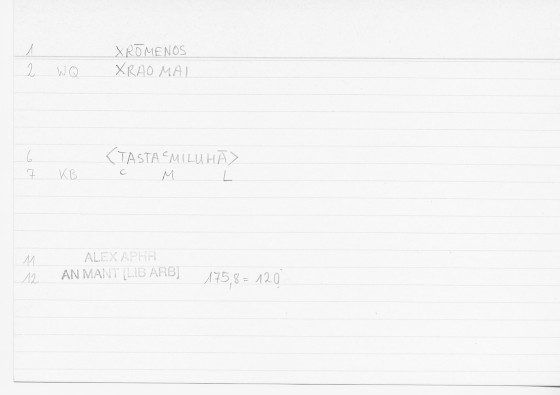 1 XRŌMENOS
2 WQ XRAOMAI
6 <TASTAᶜMILUHĀ>
7 KB ᶜ M L
11 ALEX APHR
12 AN MANT [LIB ARB] 175,8 = 120